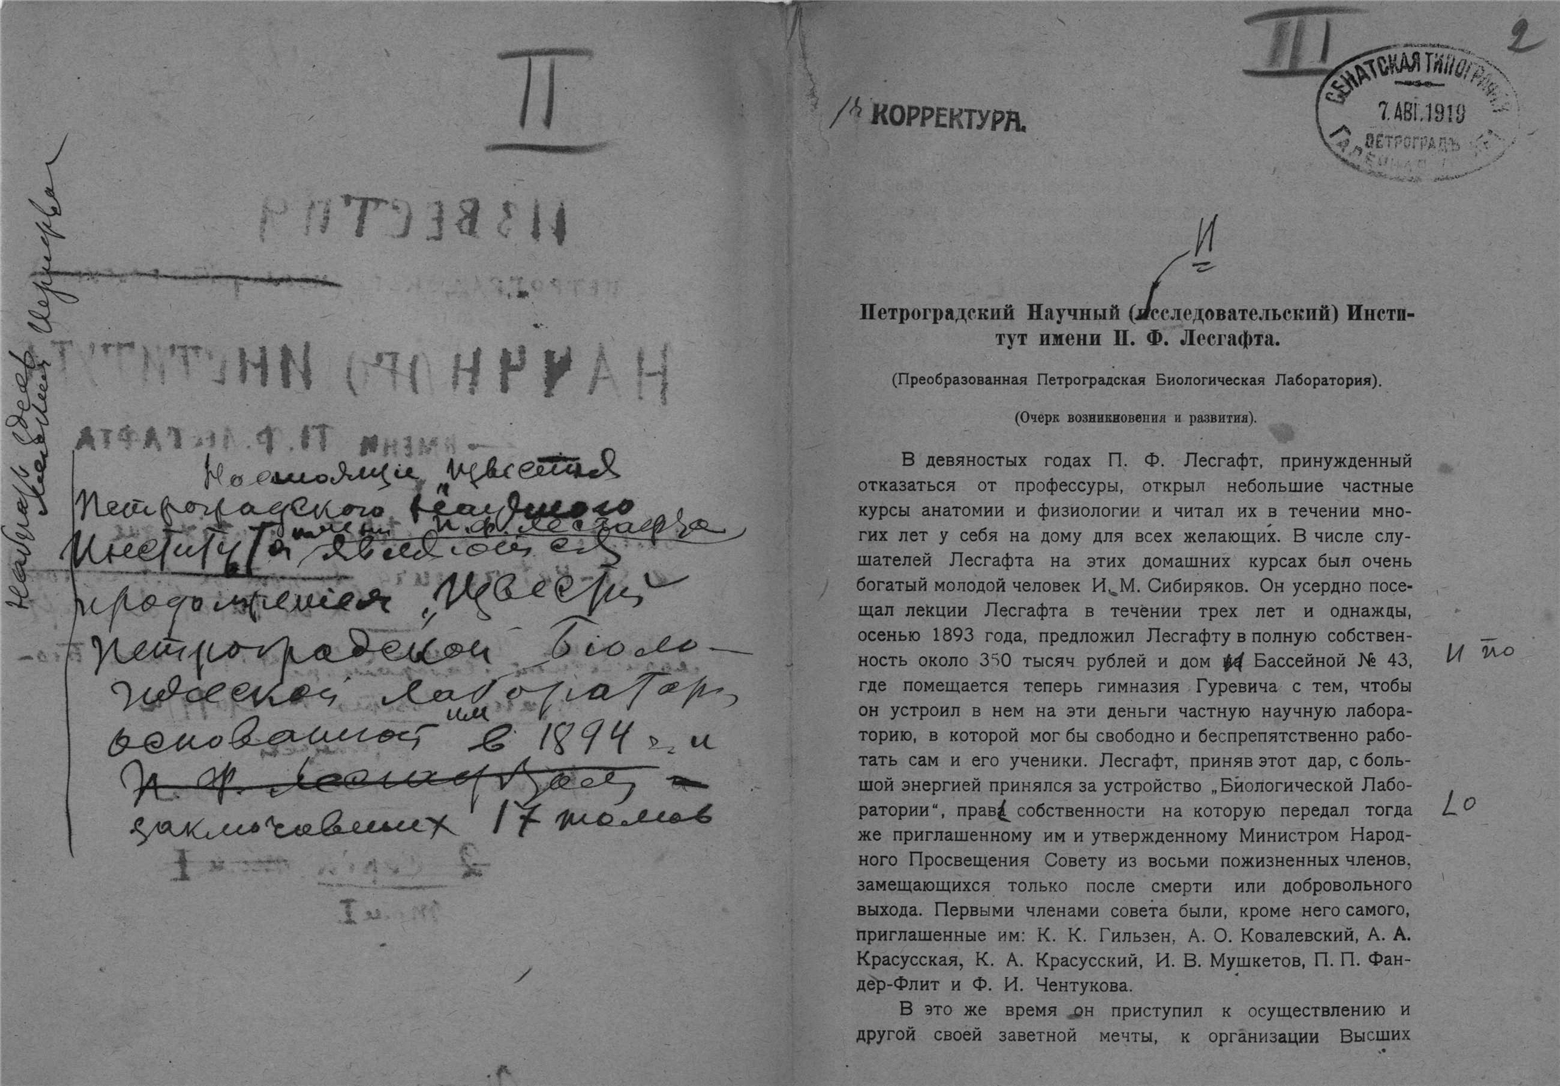 II
Настоящие „Известия
Петроградского Научного
Института имени П. Ф. Лесгафта
являются
продолжением „Известий
Петроградской Биоло-
гической Лаборатории
основанной им в 1894 г. и
П. Ф. Лесгафтом
заключавших 17 томов
III
2
КОРРЕКТУРА.
СЕНАТСКАЯ ТИПОГРАФИЯ
7. АВГ. 1919
ПЕТРОГРАДЪ
И
Петроградский Научный (исследовательский) Инсти-
тут имени П. Ф. Лесгафта.
(Преобразованная Петроградская Биологическая Лаборатория).
(Очерк возникновения и развития).
В девяностых годах П. Ф. Лесгафт, принужденный
отказаться от профессуры, открыл небольшие частные
курсы анатомии и физиологии и читал их в течении мно-
гих лет у себя на дому для всех желающих. В числе слу-
шателей Лесгафта на этих домашних курсах был очень
богатый молодой человек И. М. Сибиряков. Он усердно посе-
щал лекции Лесгафта в течении трех лет и однажды,
осенью 1893 года, предложил Лесгафту в полную собствен-
ность около 350 тысяч рублей и дом Бассейной № 43, по
где помещается теперь гимназия Гуревича с тем, чтобы
он устроил в нем на эти деньги частную научную лабора-
торию, в которой мог бы свободно и беспрепятственно рабо-
тать сам и его ученики. Лесгафт, приняв этот дар, с боль-
шой энергией принялся за устройство „Биологической Лабо-
ратории“, прав собственности на которую передал тогда о
же приглашенному им и утвержденному Министром Народ-
ного Просвещения Совету из восьми пожизненных членов,
замещающихся только после смерти или добровольного
выхода. Первыми членами совета были, кроме него самого,
приглашенные им: К. К. Гильзен, А. О. Ковалевский, А. А.
Красусская, К. А. Красусский, И. В. Мушкетов, П. П. Фан-
дер-Флит и Ф. И. Чентукова.
В это же время он приступил к осуществлению и
другой своей заветной мечты, к организации Высших